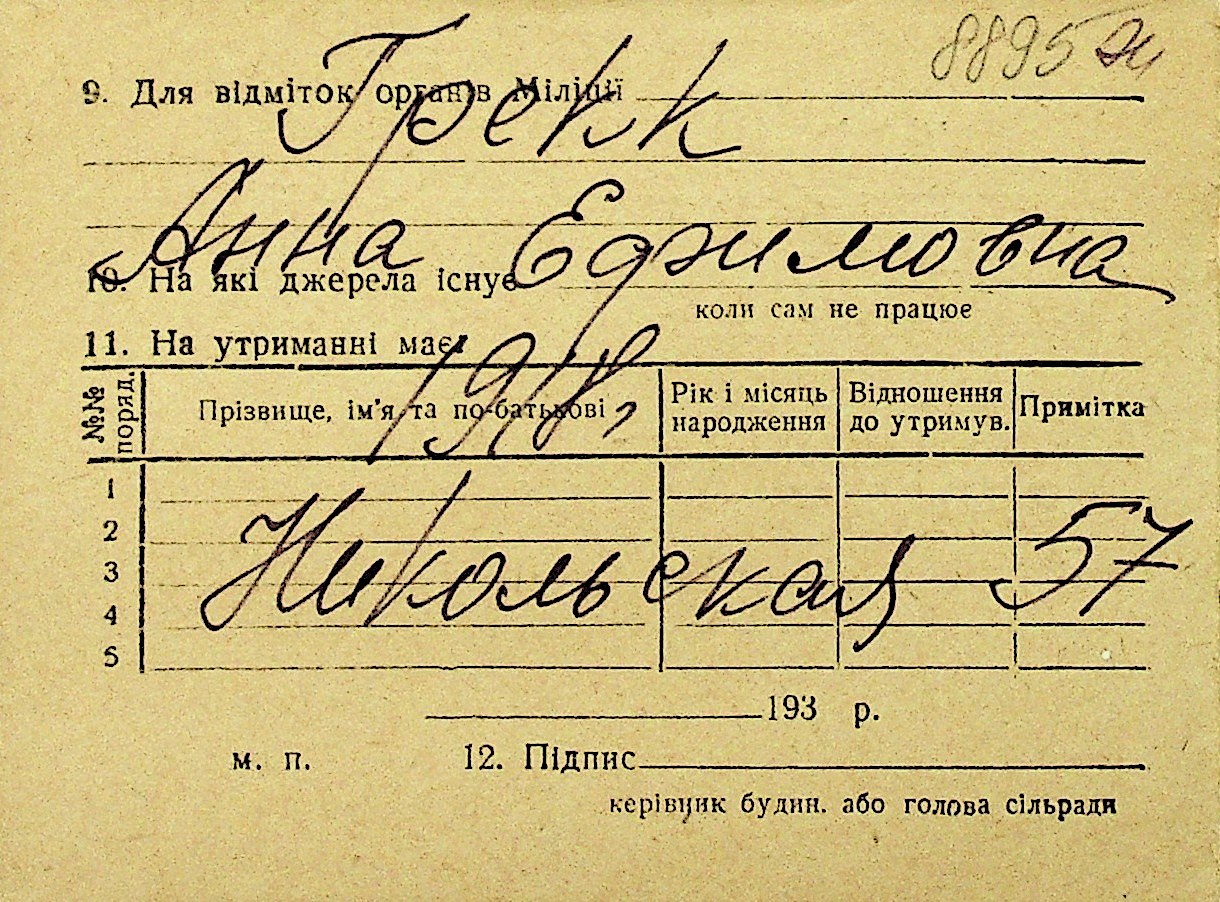 8895
9. Для відміток органів Міліції
Грекк
Анна Ефимовна
10. На які джерела існує
коли сам не працює
11. На утриманні має:
1918,
№№ поряд.
Прізвище, ім'я та по-батькові
Рік і місяць народження
Відношення до утримув.
Примітка
1
2
Никольская 57
3
4
5
193 р.
м. п. 12. Підпис
керівник будин. або голова сільради